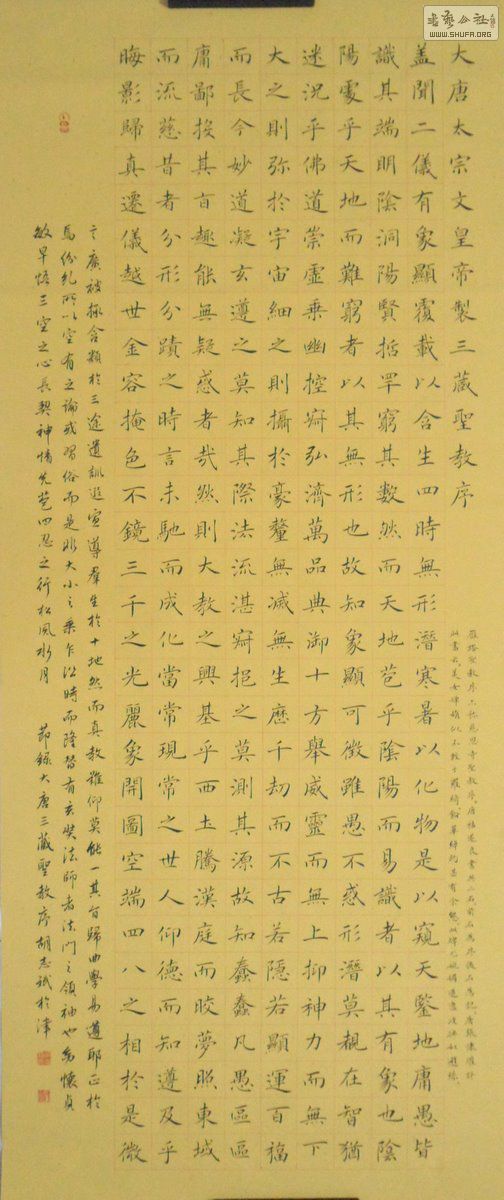 書藝公社
WWW.SHUFA.ORG
大唐太宗文皇帝製三藏聖教序
蓋聞二儀有象顯覆載以含生四時無形潛寒暑以化物是以窺天鑒地庸愚皆
識其端明陰洞陽賢括罕窮其數然而天地苞乎陰陽而易識者以其有象也陰
陽處乎天地而難窮者以其無形也故知象顯可徵雖愚不惑形潛莫覩在智猶
迷況乎佛道崇虛乗幽控寂弘濟萬品典御十方舉威靈而無上抑神力而無下
大之則弥於宇宙細之則攝於豪釐無滅無生歷千劫而不古若隱若顯運百福
而長今妙道凝玄遵之莫知其際法流湛寂挹之莫測其源故知蠢蠢凡愚區區
庸鄙投其旨趣能無疑惑者哉然則大教之興基乎西土騰漢庭而皎夢照東域
而流慈昔者分形分蹟之時言未馳而成化當常現常之世人仰德而知遵及乎
晦影歸真遷儀越世金容掩色不鏡三千之光麗象開圖空端四八之相於是微
言廣被拯含類於三途遺訓遐宣導羣生於十地然而真教難仰莫能一其旨歸曲學易遵耶正於
焉紛糺所以空有之論或習俗而是非大小之乘乍沿時而隆替有玄奘法師者法門之領袖也幼懷貞
敏早悟三空之心長契神情先苞四忍之行松風水月 節錄大唐三藏聖教序胡志斌於津
雁塔聖教序亦稱慈恩寺聖教序唐褚遂良書共二石前石為序後石為記唐張懷瓘評
此書云美女嬋娟似不輕于羅綺鉛華綽約甚有余態